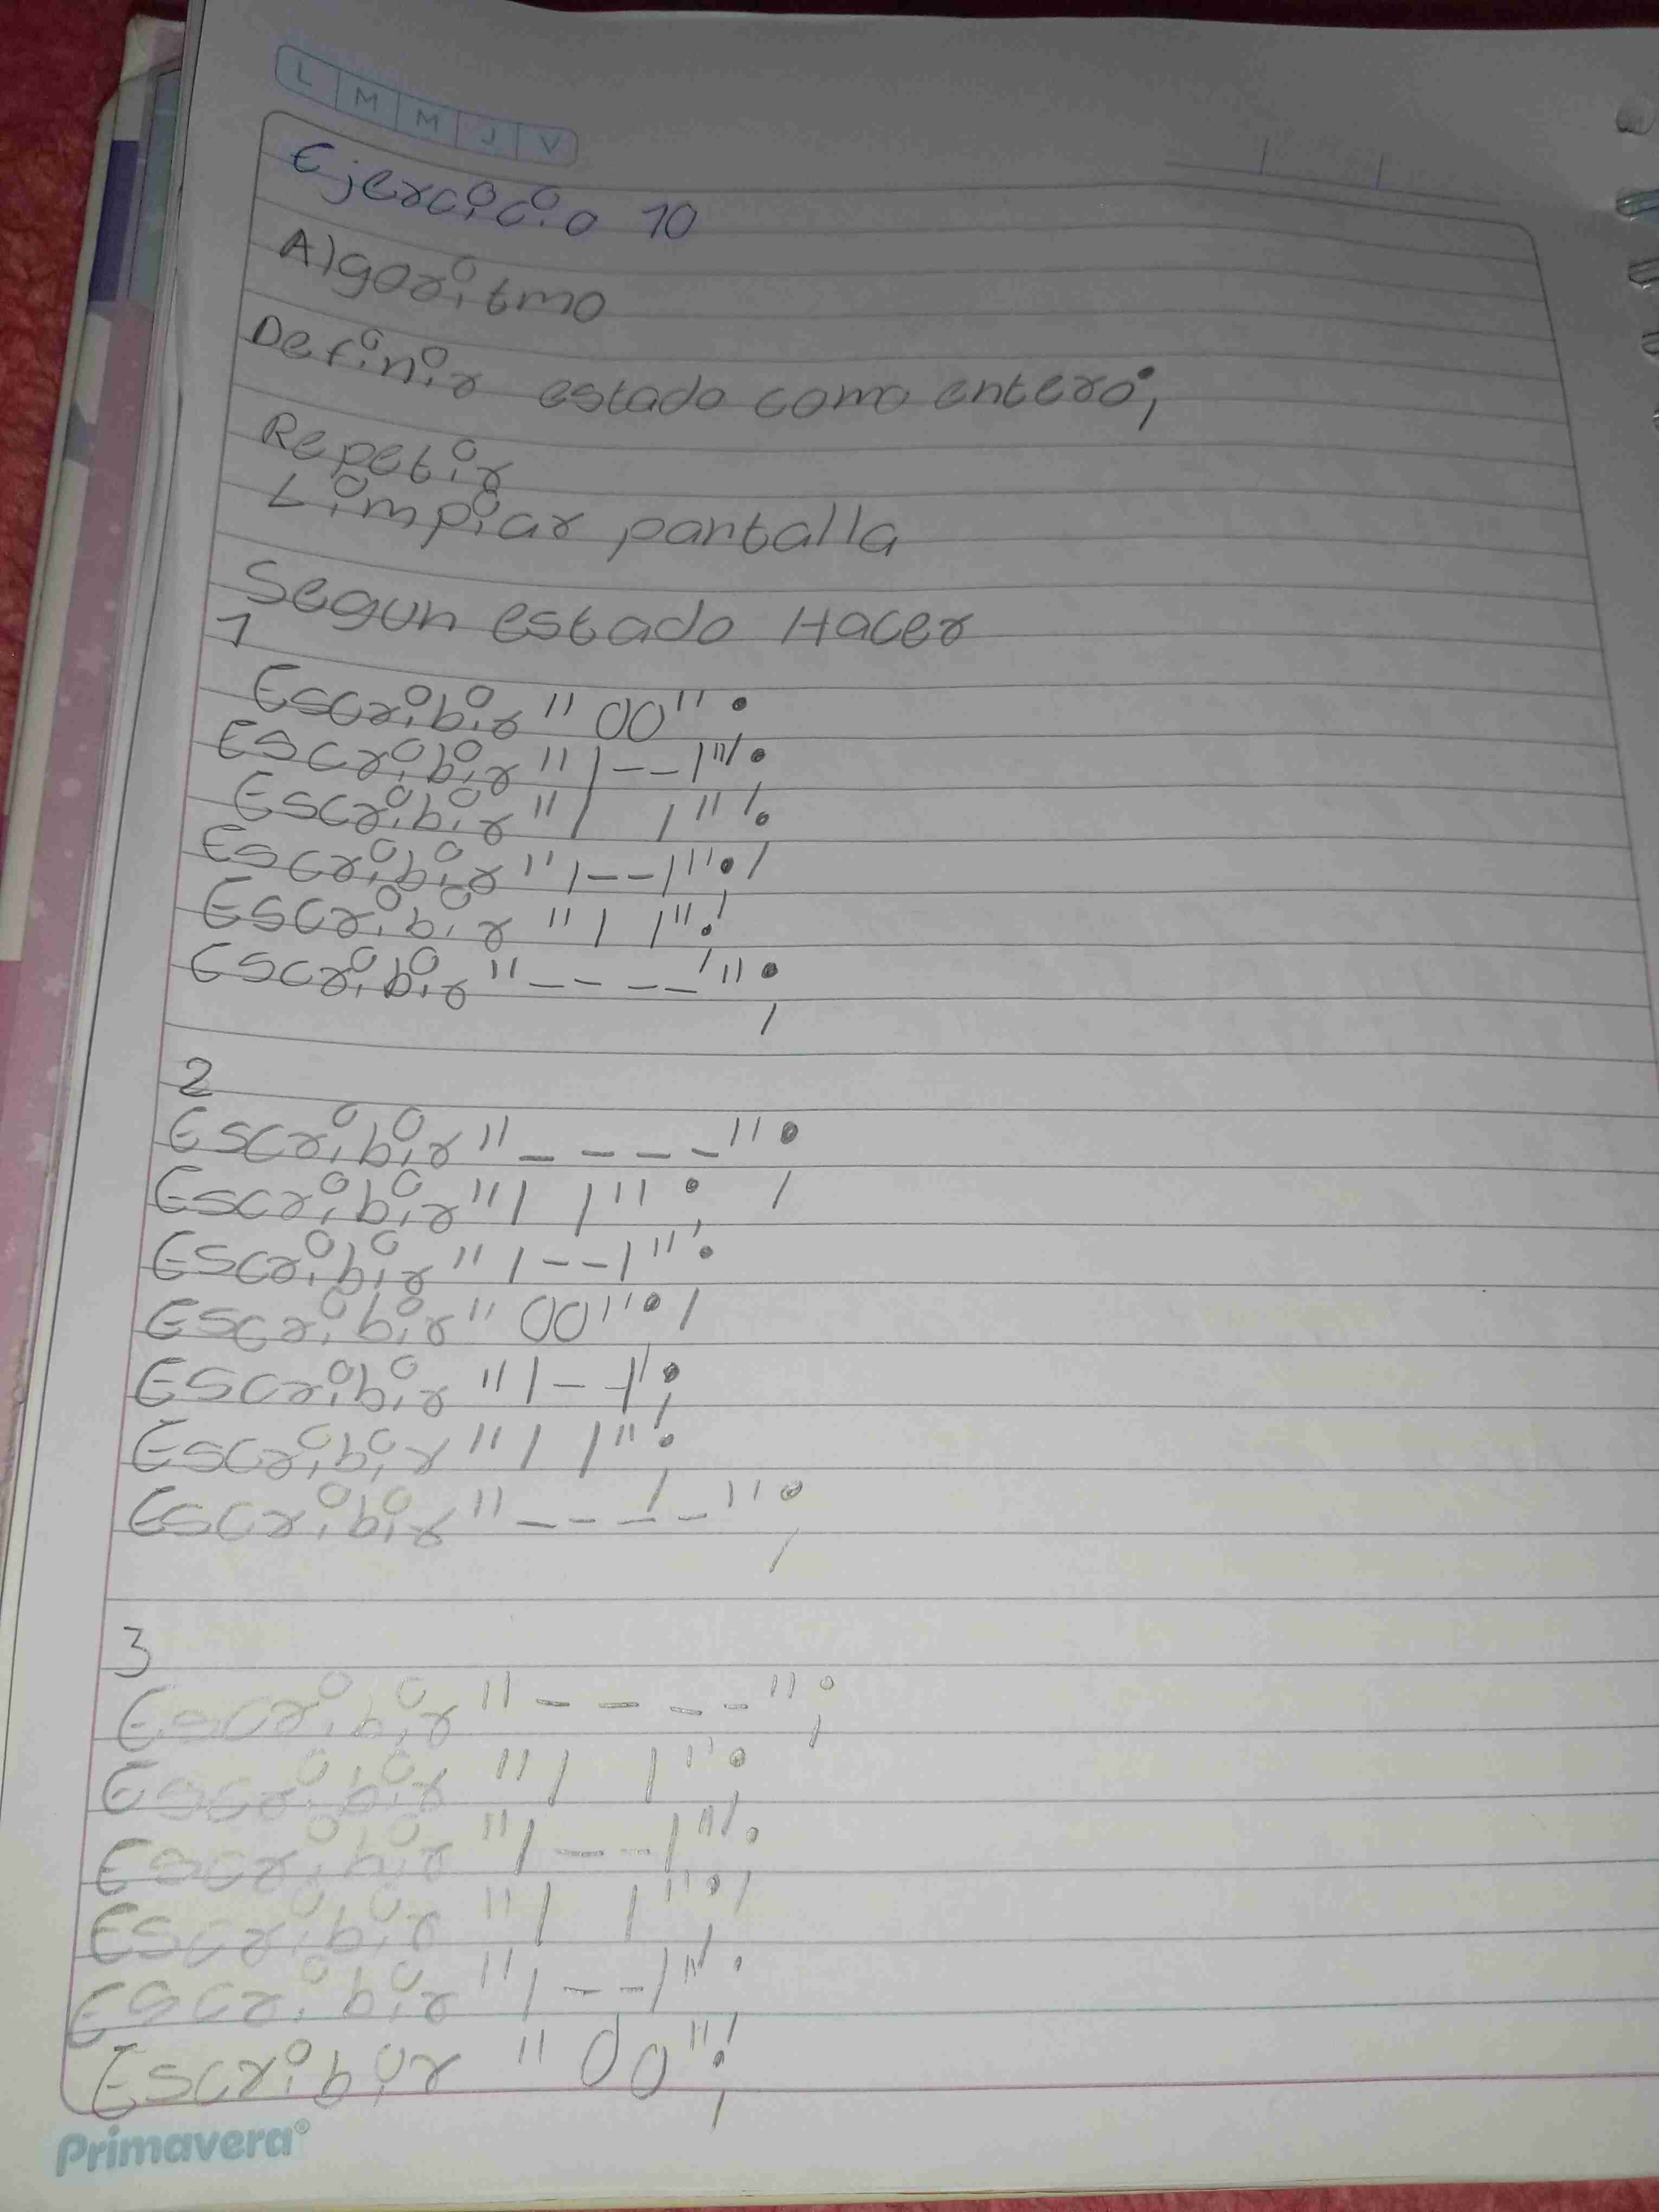 L M M J V
Ejercicio 10
Algoritmo
Definir estado como entero;
Repetir
Limpiar pantalla
Segun estado Hacer
1
Escribir "00";
Escribir "|--|";
Escribir "|  |";
Escribir "|--|";
Escribir "| |";
Escribir "----";
2
Escribir "----";
Escribir "| |";
Escribir "|--|";
Escribir "00";
Escribir "|--|";
Escribir "| |";
Escribir "----";
3
Escribir "----";
Escribir "|  |";
Escribir "|--|";
Escribir "|  |";
Escribir "|--|";
Escribir "00";
Primavera®